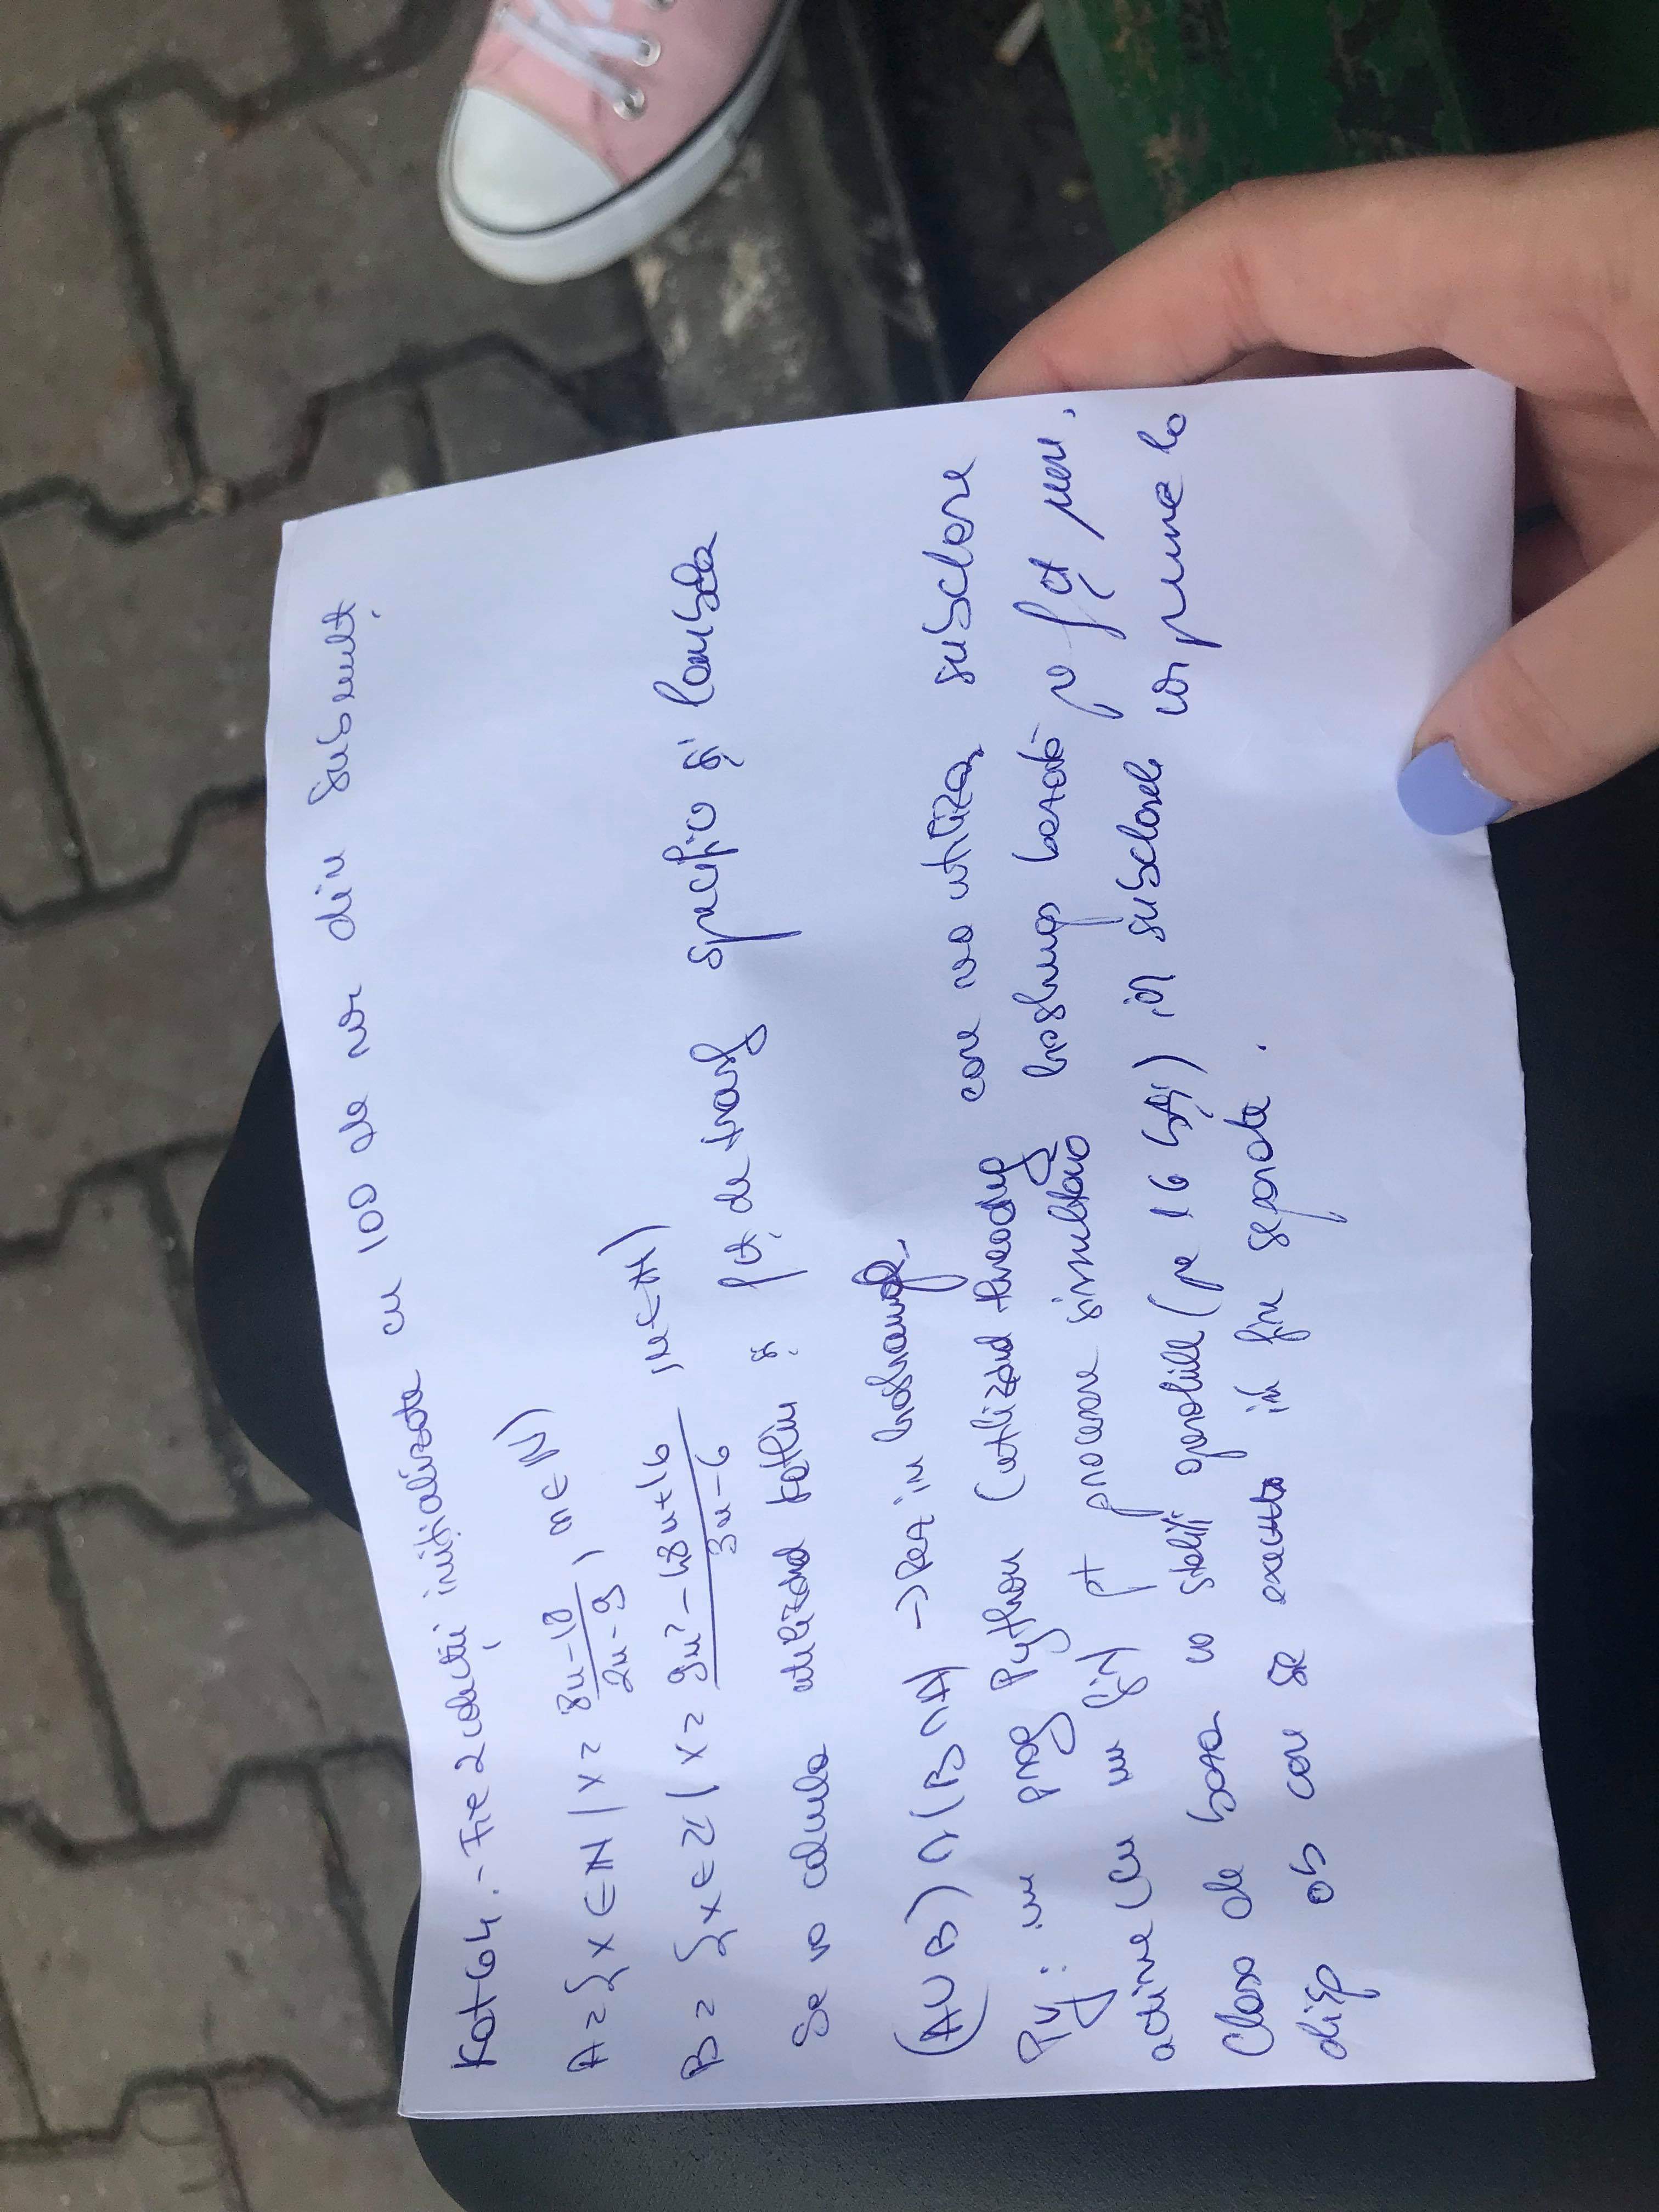 Kot 64. - Fie 2 colecții inițializate cu 100 de val din submulț
A = { x ∈ N | x = 8n-18 / 2n-9 , n ∈ N }
B = { x ∈ Z | x = 9n² - 48n + 16 / 3n - 6 , n ∈ N }
Se va calcula utilizând kotlin și fct de transf specific și lambda
(A∪B) ∩ (B∩A) → Rez in hashmap.
Py: un prog Python (utilizând threading care va utiliza subclase
active cu un fir) pt procesare simultană hashmap bazată pe fct
Clasa de baza va stabili operațiile (pe 16 biți) iar subclasele vor prune la
disp ob care se executa in fire separate.